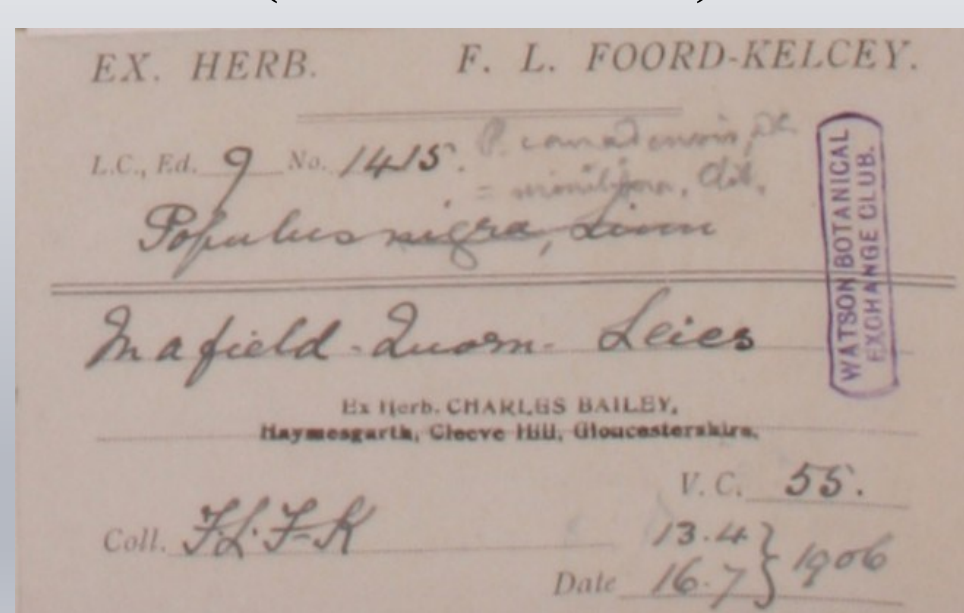 EX. HERB. F. L. FOORD-KELCEY.
L.C., Ed. 9 No. 1415. P. canadensis,
= monilifera, Ait.
Populus nigra, Linn
In a field - Quorn - Leics
WATSON BOTANICAL
EXCHANGE CLUB.
Ex Herb. CHARLES BAILEY,
Haymesgarth, Cleeve Hill, Gloucestershire.
V. C. 55.
Coll. F.L.F-K
13.4 } 1906
Date 16.7